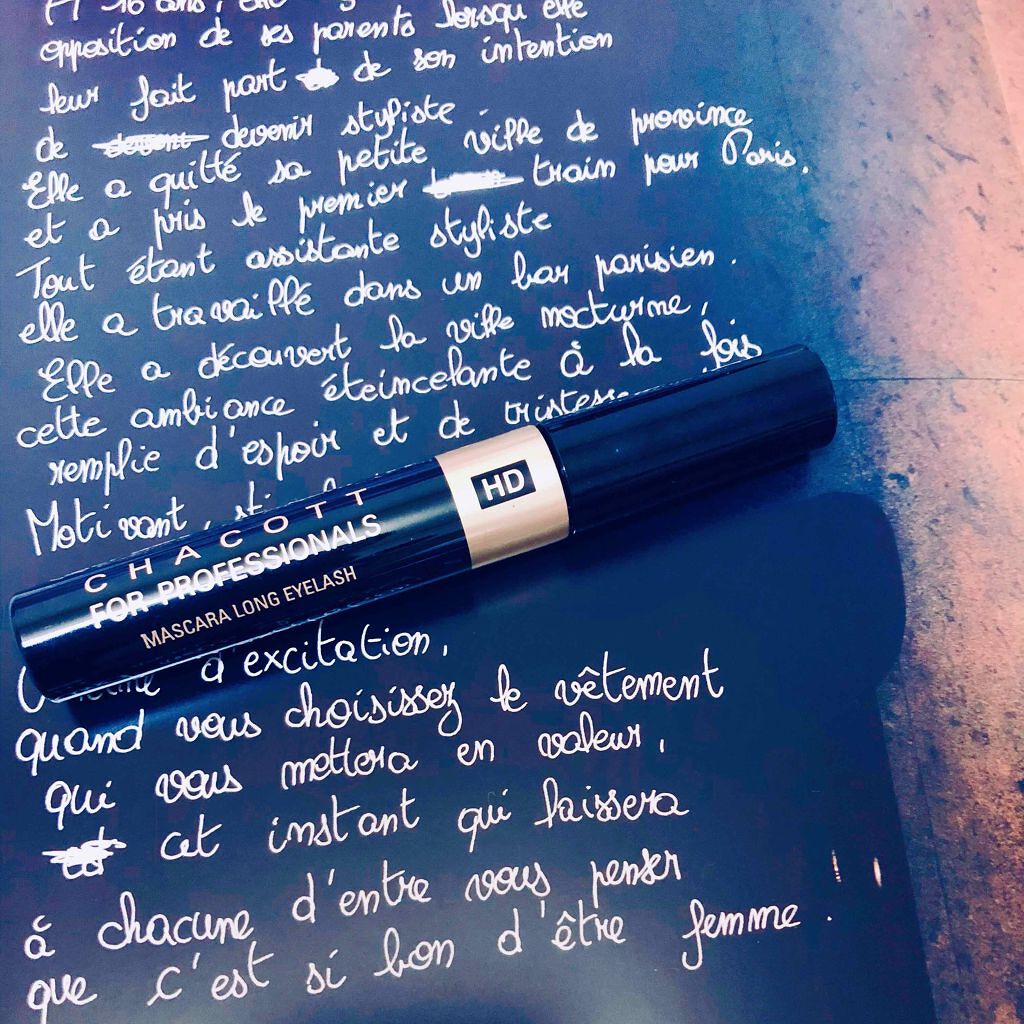 A 16 ans,
opposition de ses parents lorsqu'elle
leur fait part de son intention
de devenir styliste
Elle a quitté sa petite ville de province
et a pris le premier train pour Paris.
Tout étant assistante styliste
elle a travaillé dans un bar parisien.
Elle a découvert la ville nocturne,
cette ambiance éteincelante à la fois
remplie d'espoir et de tristesse
Motivant,
CHACOTT
FOR PROFESSIONALS
MASCARA LONG EYELASH
HD
d'excitation,
quand vous choisissez le vêtement
qui vous mettera en valeur,
cet instant qui laissera
à chacune d'entre vous penser
que c'est si bon d'être femme.